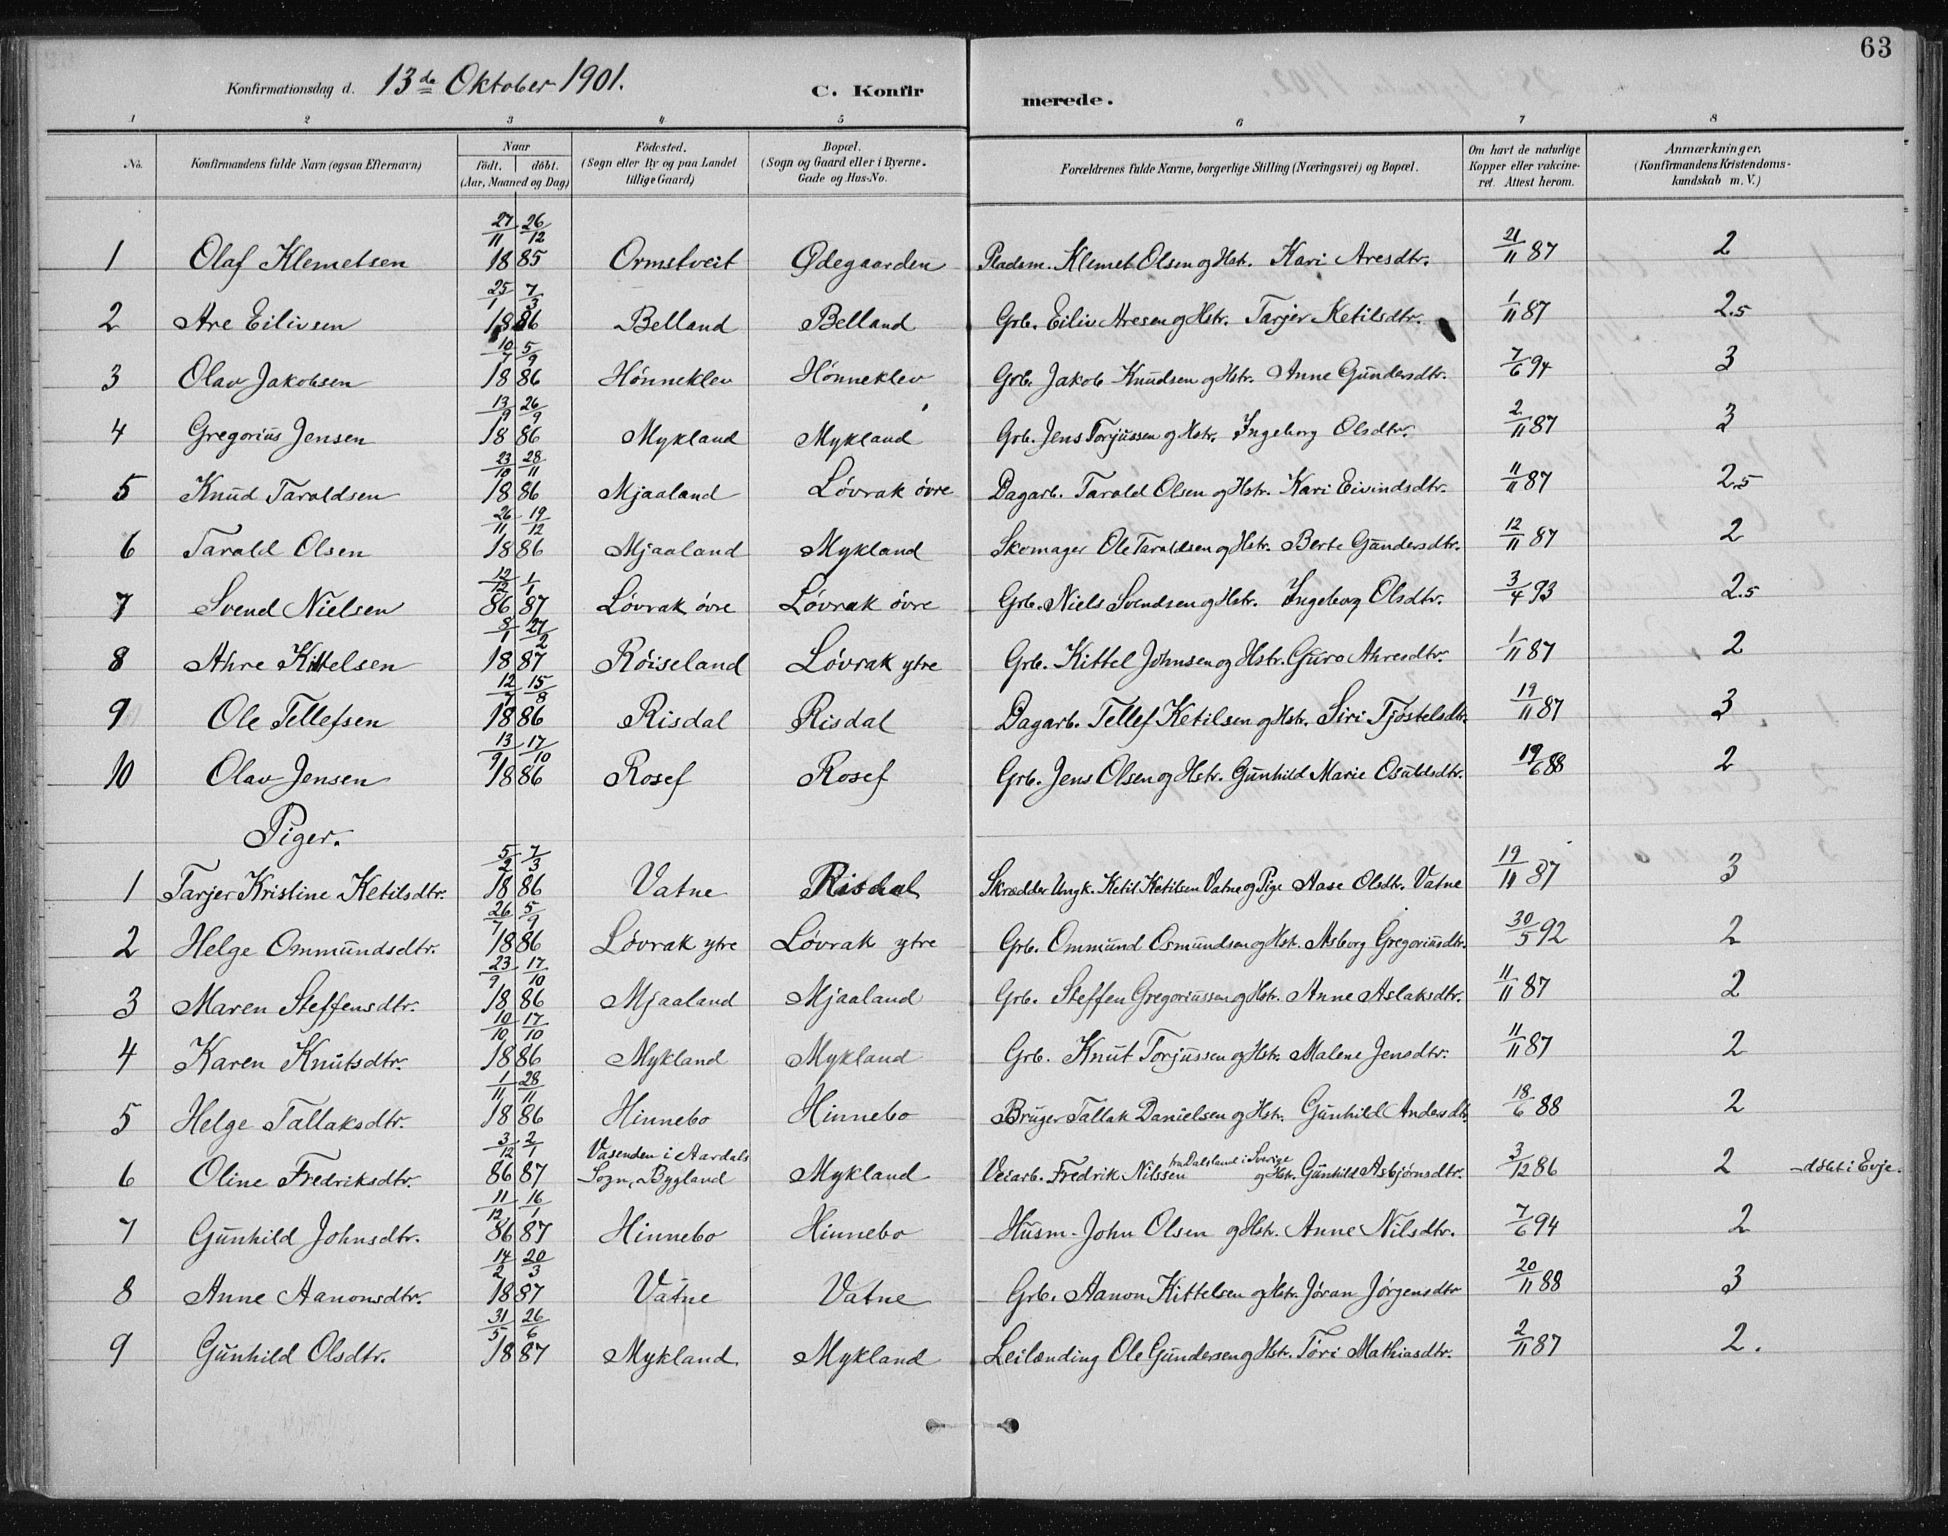 63
Konfirmationsdag d. 13de Oktober 1901. C. Konfir merede.
1 2 3 4 5 6 7 8
No. Konfirmandens fulde Navn (ogsaa Efternavn) Naar født. døbt. (Aar, Maaned og Dag) Fødested. (Sogn eller By og paa Landet tillige Gaard) Bopæl. (Sogn og Gaard eller i Byerne. Gade og Hus-No. Forældrenes fulde Navne, borgerlige Stilling (Næringsvei) og Bopæl. Om havt de naturlige Kopper eller vakcineret. Attest herom. Anmærkninger, (Konfirmandens Kristendomskundskab m. V.)
1 Olaf Klemetsen 27/11 26/12 1885 Ormstveit Ødegaarden Pladsm. Klemet Olsen og Hstr. Kari Aresdtr. 21/11 87 2
2 Are Eilivsen 25/1 7/3 1886 Belland Belland Grb. Eiliv Aresen og Hstr. Tarjer Ketilsdtr. 1/11 87 2.5
3 Olav Jakobsen 10/7 5/9 1886 Hønneklev Hønneklev Grb. Jakob Knudsen og Hstr. Anne Gundersdtr. 7/6 94 3
4 Gregorius Jensen 13/9 26/9 1886 Mykland Mykland Grb. Jens Torjussen og Hstr. Ingeborg Olsdtr. 2/11 87 3
5 Knud Taraldsen 23/10 28/11 1886 Mjaaland Løvrak øvre Dagarb. Tarald Olsen og Hstr. Kari Eivindsdtr. 11/11 87 2.5
6 Tarald Olsen 26/11 19/12 1886 Mjaaland Mykland Skomager Ole Taraldsen og Hstr. Berte Gundersdtr. 12/11 87 2
7 Svend Nielsen 12/12 1/1 86 87 Løvrak øvre Løvrak øvre Grb. Niels Svendsen og Hstr. Ingeborg Olsdtr. 3/4 93 2.5
8 Ahre Kittelsen 8/1 27/2 1887 Røiseland Løvrak ytre Grb. Kittel Johnsen og Hstr. Guro Ahresdtr. 1/11 87 2
9 Ole Tellefsen 12/7 15/8 1886 Risdal Risdal Dagarb. Tellef Ketilsen og Hstr. Siri Tjøstelsdtr. 19/11 87 3
10 Olav Jensen 13/9 17/10 1886 Rosef Rosef Grb. Jens Olsen og Hstr. Gunhild Marie Osuldsdtr. 19/6 88 2
Piger.
1 Tarjer Kristine Ketilsdtr. 5/2 7/3 1886 Vatne Risdal Skrædder Ungk. Ketil Ketilsen Vatne og Pige Aase Olsdtr. Vatne 19/11 87 3
2 Helge Ommundsdtr. 26/7 5/9 1886 Løvrak ytre Løvrak ytre Grb. Ommund Osmundsen og Hst. Asborg Gregoriusdtr. 30/5 92 2
3 Maren Steffensdtr. 23/9 17/10 1886 Mjaaland Mjaaland Grb. Steffen Gregoriussen og Hstr. Anne Aslaksdtr. 11/11 87 2
4 Karen Knutsdtr. 10/10 17/10 1886 Mykland Mykland Grb. Knut Torjussen og Hstr. Malene Jensdtr. 11/11 87 2
5 Helge Tallaksdtr. 1/11 28/11 1886 Hinnebo Hinnebo Bruger Tallak Danielsen og Hstr. Gunhild Andersdtr. 18/6 88 2
6 Oline Fredriksdtr. 3/12 2/1 86 87 Vasenden i Aardals Sogn, Bygland Mykland Veiarb. Fredrik Nilssen fra Dalsland i Sverige og Hstr. Gunhild Asbjørnsdtr. 3/12 86 2 døbt i Evje.
7 Gunhild Johnsdtr. 11/12 16/1 86 87 Hinnebo Hinnebo Husm. John Olsen og Hstr. Anne Nilsdtr. 7/6 94 2
8 Anne Aanonsdtr. 14/2 20/3 1887 Vatne Vatne Grb. Aanon Kittelsen og Hstr. Jøran Jørgensdtr 20/11 88 3
9 Gunhild Olsdtr. 31/5 26/6 1887 Mykland Mykland Leilænding Ole Gundersen og Hstr. Tøri Mathiasdtr. 2/11 87 2.